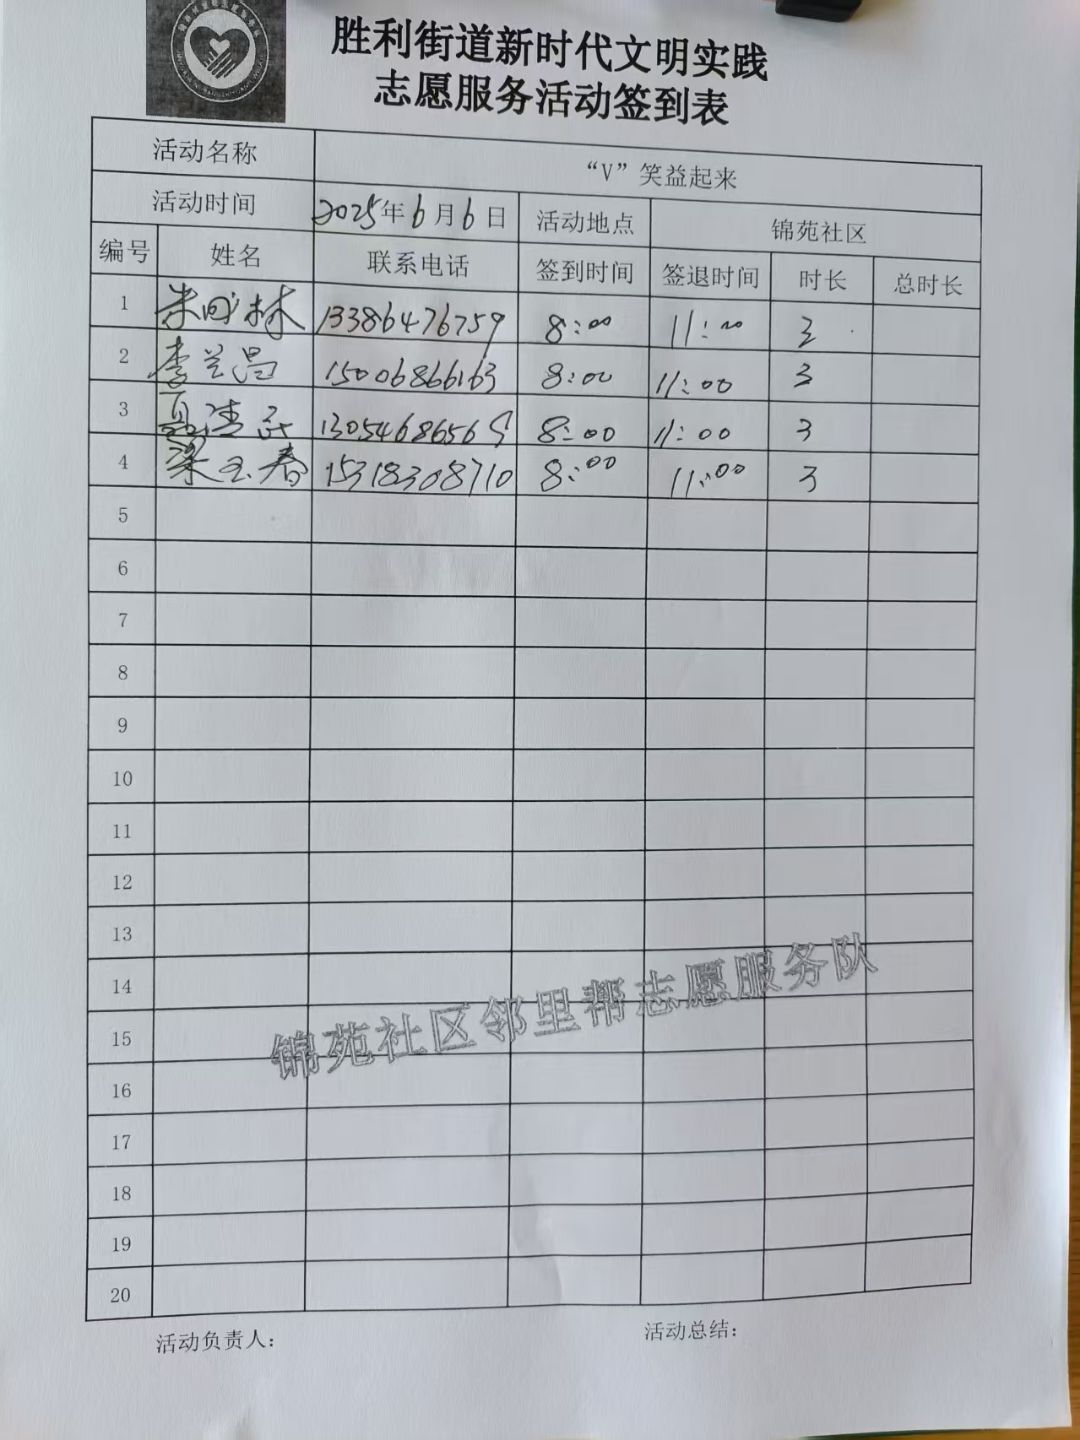 胜利街道新时代文明实践
志愿服务活动签到表
活动名称 “V”笑益起来
活动时间 2025年6月6日 活动地点 锦苑社区
编号 姓名 联系电话 签到时间 签退时间 时长 总时长
1 林 13386476759 8:00 11:00 3
2 李兰昌 15006866163 8:00 11:00 3
3 13054686569 8:00 11:00 3
4 梁玉春 15318308710 8:00 11:00 3
5
6
7
8
9
10
11
12
13
14
15
16
17
18
19
20
锦苑社区邻里帮志愿服务队
活动负责人: 活动总结: